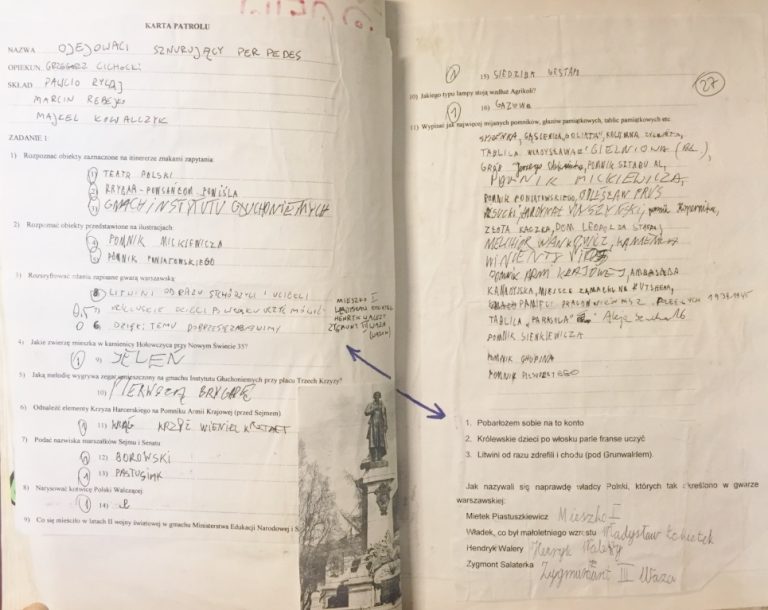 KARTA PATROLU
NAZWA OJEJOWACI SZNURUJĄCY PER PEDES
OPIEKUN GRZEGORZ CICHOCKI
SKŁAD
MARCIN REBEJKO
MAJKEL KOWALCZYK
ZADANIE 1:
1) Rozpoznać obiekty zaznaczone na itinererze znakami zapytania:
1) TEATR POLSKI
3) GMACH INSTYTUTU GŁUCHONIEMYCH
2) Rozpoznać obiekty przedstawione na ilustracjach:
4) POMNIK MICKIEWICZA
5) POMNIK PONIATOWSKIEGO
3) Rozszyfrować zdania zapisane gwarą warszawską:
LITWINI OD RAZU STCHÓRZYLI I UCIEKLI
0,5
0
MIESZKO I
HENRYK WALEZY
ZYGMUNT III WAZA
(WASOW)
4) Jakie zwierzę mieszka w kamienicy Hołowczyca przy Nowym Świecie 35?
1 9) JELEŃ
5) Jaką melodię wygrywa zegar umieszczony na gmachu Instytutu Głuchoniemych przy placu Trzech Krzyży?
10) PIERWSZĄ BRYGADĘ
6) Odnaleźć elementy Krzyża Harcerskiego na Pomniku Armii Krajowej (przed Sejmem)
1 11) KRĄG KRZYŻ WIENIEC
7) Podać nazwiska marszałków Sejmu i Senatu
12) BOROWSKI
13) PASTUSIAK
8) Narysować kotwicę Polski Walczącej:
1 14)
9) Co się mieściło w latach II wojny światowej w gmachu Ministerstwa Edukacji Narodowej i S
15) SIEDZIBA GESTAPO
27
10) Jakiego typu lampy stoją wzdłuż Agrikoli?
1 16) GAZOWA
11) Wypisać jak najwięcej mijanych pomników, głazów pamiątkowych, tablic pamiątkowych etc
SYRENKA, GĄSIENICA, „GOLIATA”, KOLUMNA ZYGMUNTA,
TABLICA WŁADYSŁAWA GIELNIOWA (BŁ.),
GRÓB POMNIK SZTABU AL,
POMNIK MICKIEWICZA,
POMNIK PONIATOWSKIEGO, BOLESŁAW PRUS
KARDYNAŁ WYSZYŃSKI, pomnik Kopernika,
ZŁOTA KACZKA, DOM LEOPOLDA STAFFA,
MELCHIOR WAŃKOWICZ,
WINCENTY WITOS
POMNIK ARMII KRAJOWEJ, AMBASADA
KANADYJSKA, MIEJSCE ZAMACHU NA KUTSCHERĘ,
PAMIĘCI PRACOWNIKÓW 1939-1945
TABLICA „PARASOLA”
POMNIK SIENKIEWICZA
POMNIK CHOPINA
POMNIK PIŁSUDSKIEGO
1. Pobarłożem sobie na to konto
2. Królewskie dzieci po włosku parle franse uczyć
3. Litwini od razu zdrefili i chodu (pod Grunwaldem).
Jak nazywali się naprawdę władcy Polski, których tak określono w gwarze
warszawskiej:
Mietek Piastuszkiewicz Mieszko I
Władek, co był małoletniego wzrostu Władysław Łokietek
Hendryk Walery Henryk Walezy
Zygmont Salaterka Zygmunt III Waza